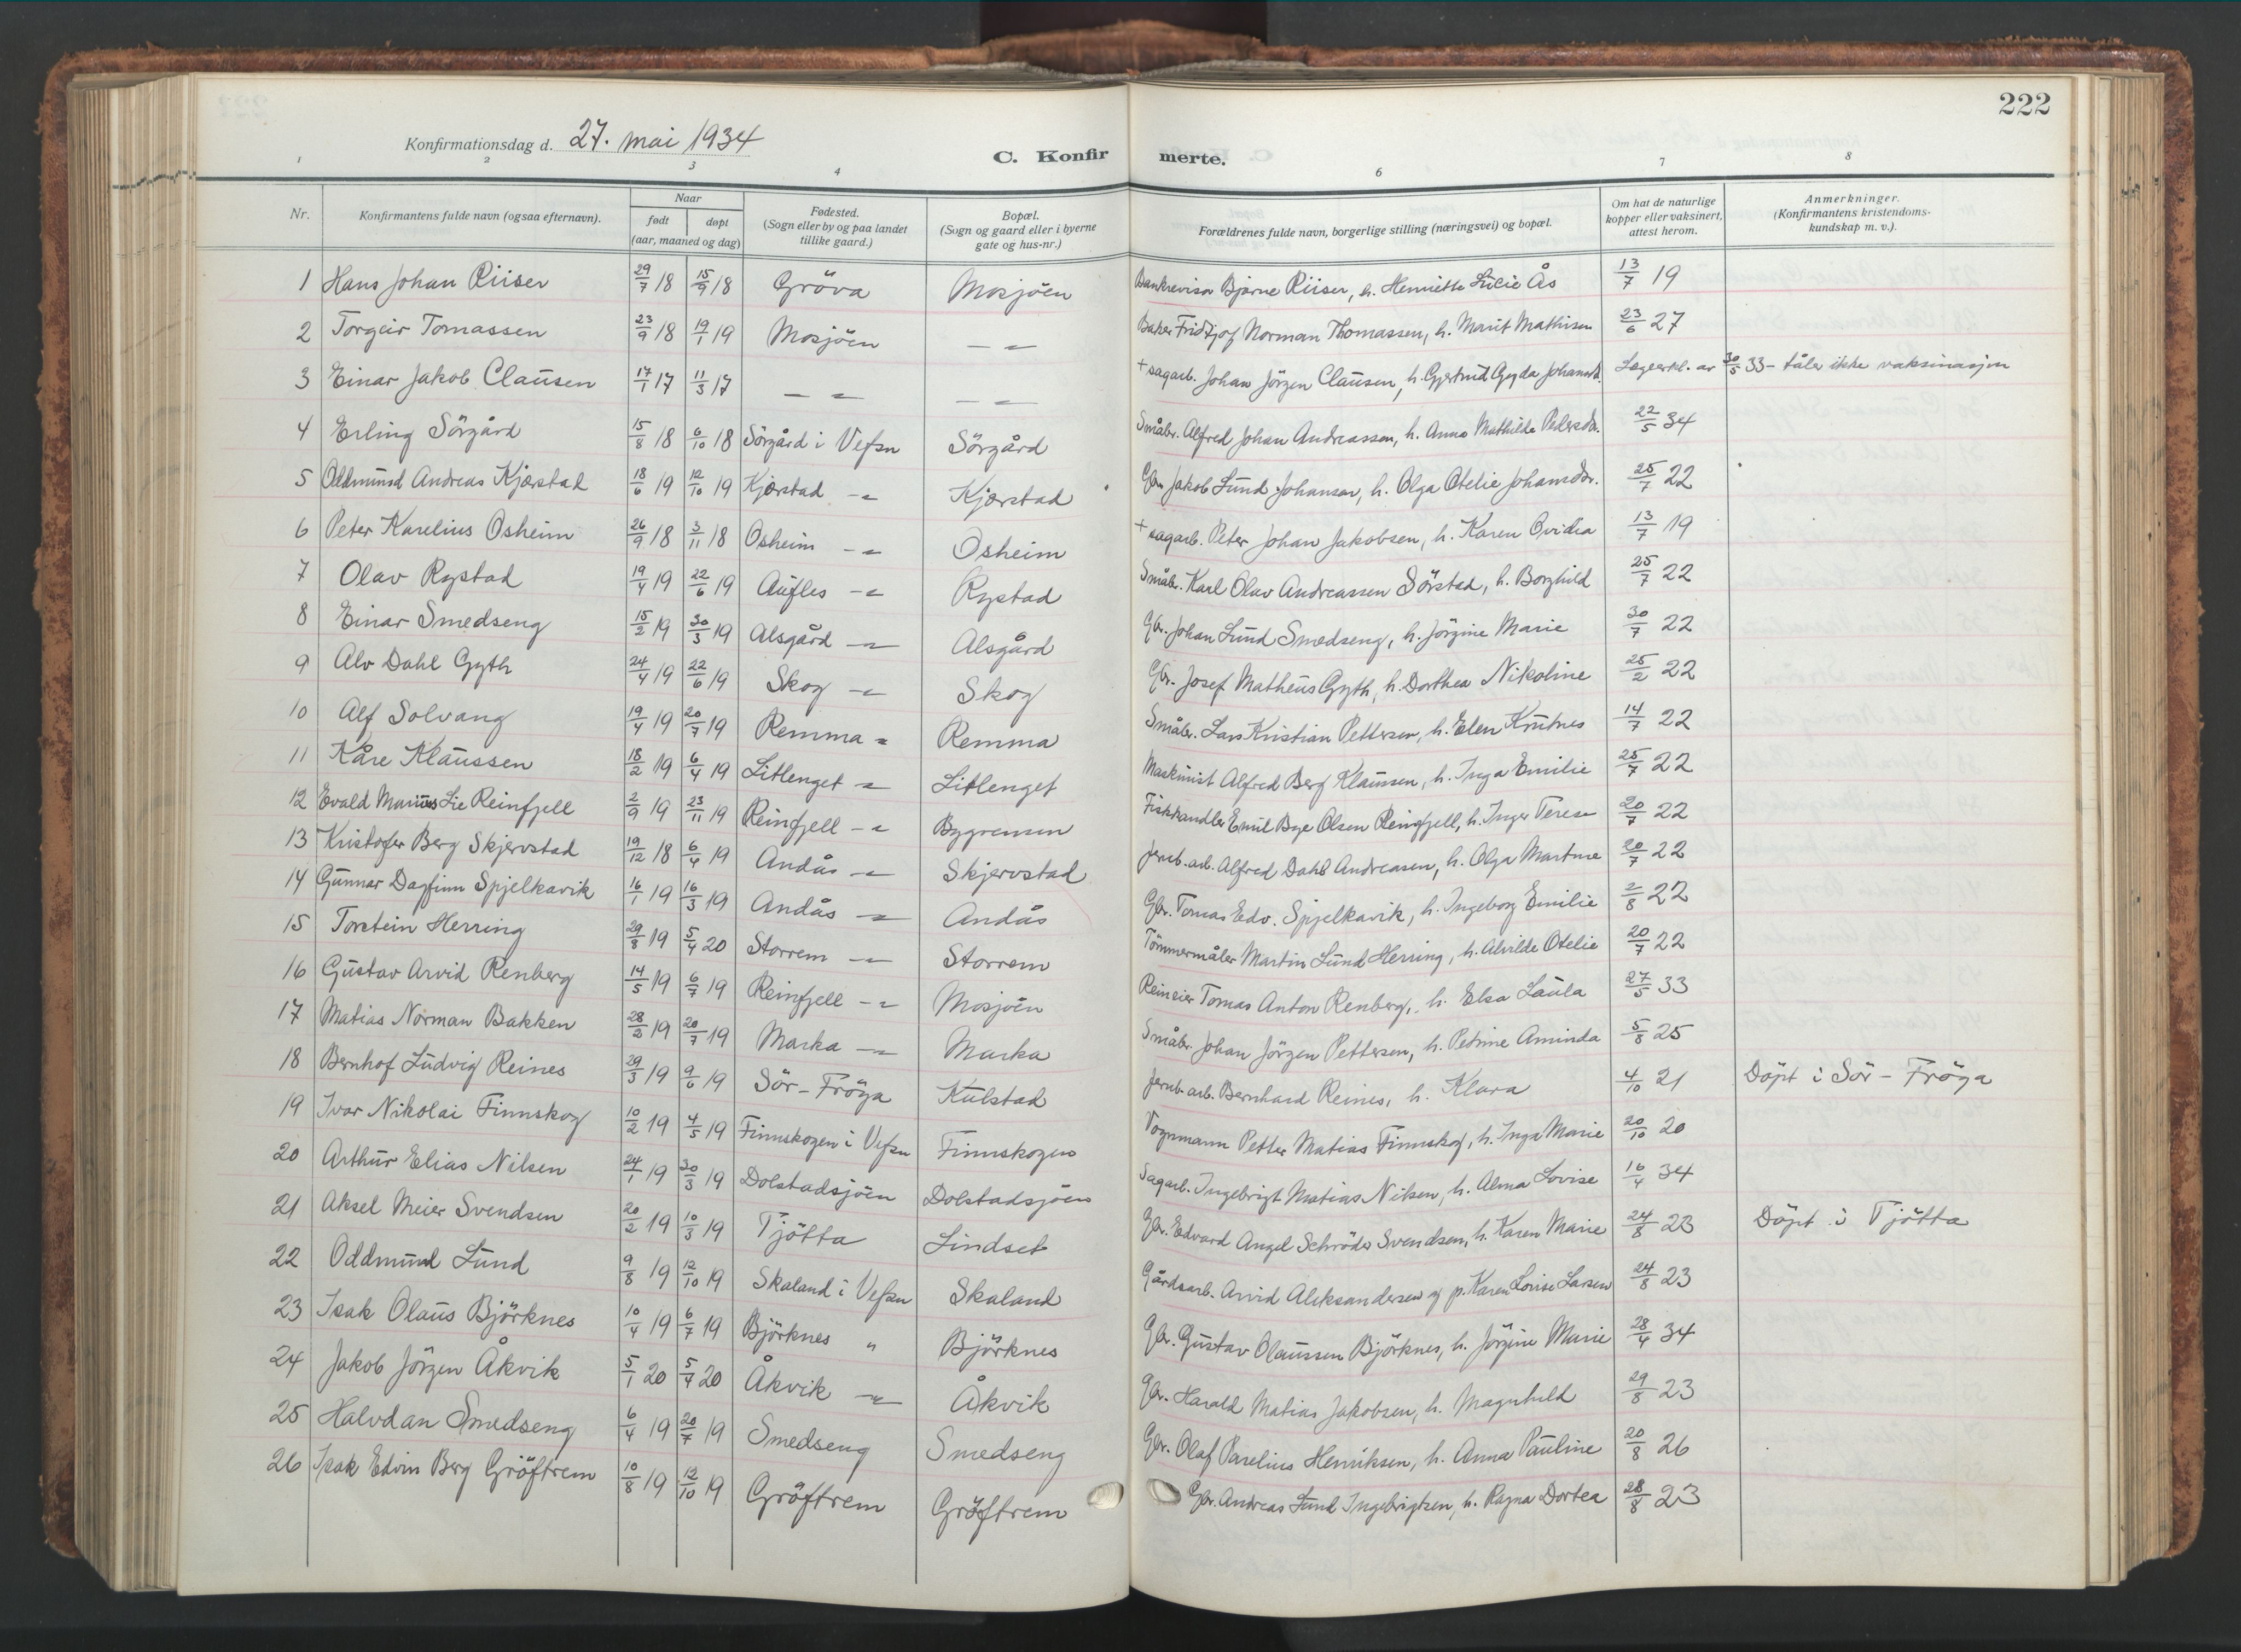 222
Konfirmationsdag d. 27. mai 1934
C. Konfirmerte.
1 2 3 4 6 7 8
Nr. | Konfirmantens fulde navn (ogsaa efternavn). | Naar født døpt (aar, maaned og dag) | Fødested. (Sogn eller by og paa landet tillike gaard.) | Bopæl. (Sogn og gaard eller i byerne gate og hus-nr.) | Forældrenes fulde navn, borgerlige stilling (næringsvei) og bopæl. | Om hat de naturlige kopper eller vaksinert, attest herom. | Anmerkninger. (Konfirmantens kristendomskundskap m. v.).
1 Hans Johan Riiser 29/7 18 15/9 18 Gröva Mosjöen Bankrevisor Bjarne Riiser, h. Henriette Lucie Ås 13/7 19
2 Torgeir Tomassen 23/9 18 19/1 19 Mosjöen — " — Baker Fridtjof Norman Thomassen, h. Marit Mathisen 23/6 27
3 Einar Jakob Clausen 17/1 17 11/3 17 — " — — " — + sagarb. Johan Jörgen Clausen, h. Gjertrud Gyda Johansd. Lægeerkl. av 30/5 33 - tåler ikke vaksinasjon
4 Erling Sörgård 15/8 18 6/10 18 Sörgård i Vefsn Sörgård Småbr. Alfred Johan Andreassen, h. Anna Mathilde Pedersdr. 22/5 34
5 Oldmund Andreas Kjærstad 18/6 19 12/10 19 Kjærstad — " Kjærstad Gbr. Jakob Lund Johansen, h. Olga Otelie Johansdr. 25/7 22
6 Peter Karelius Osheim 26/9 18 3/11 18 Osheim — " Osheim + sagarb. Peter Johan Jakobsen, h. Karen Ovidia 13/7 19
7 Olav Rystad 19/4 19 22/6 19 Aufles — " Rystad Småbr. Karl Olav Andreassen Sörstad, h. Borghild 25/7 22
8 Einar Smedseng 15/2 19 30/3 19 Alsgård — " Alsgård Gbr. Johan Lund Smedseng, h. Jörgine Marie 30/7 22
9 Alv Dahl Gyth 24/4 19 22/6 19 Skog — " Skog Gbr. Josef Matheus Gyth, h. Dorthea Nikoline 25/2 22
10 Alf Solvang 19/4 19 20/7 19 Remma " Remma Småbr. Lars Kristian Pettersen, h. Elen Krutnes 14/7 22
11 Kåre Klaussen 18/2 19 6/4 19 Litlenget — " Litlenget Maskinist Alfred Berg Klaussen, h. Inga Emilie 25/7 22
12 Evald Marius Lie Reinfjell 2/9 19 23/11 19 Reinfjell — " Bygrensen Fiskhandler Emil Bye Olsen Reinfjell, h. Inger Terese 20/7 22
13 Kristofer Berg Skjervstad 19/12 18 6/4 19 Andås — " Skjervstad Jernb.arb. Alfred Dahl Andreasen, h. Olga Martine 20/7 22
14 Gunnar Dagfinn Spjelkavik 16/1 19 16/3 19 Andås — " Andås Gbr. Tomas Edv. Spjelkavik, h. Ingeborg Emilie 2/8 22
15 Torstein Herring 29/8 19 5/4 20 Storrem — " Storrem Tömmermåler Martin Lund Herring, h. Alvilde Otelie 20/7 22
16 Gustav Arvid Renberg 14/5 19 6/7 19 Reinfjell — " Mosjöen Reineier Tomas Anton Renberg, h. Elsa Laula 27/5 33
17 Matias Norman Bakken 28/2 19 20/7 19 Marka — " Marka Småbr. Johan Jörgen Pettersen, h. Petrine Aminda 5/8 25
18 Bernhof Ludvig Reines 29/3 19 9/6 19 Sör-Fröya Kulstad Jernb.arb. Bernhard Reines, h. Klara 4/10 21 Döpt i Sör-Fröya
19 Ivar Nikolai Finnskog 10/2 19 4/5 19 Finnskogen i Vefsn Finnskogen Vognmann Petter Matias Finnskog, h. Inga Marie 20/10 20
20 Arthur Elias Nilsen 24/1 19 30/3 19 Dolstadsjöen Dolstadsjöen Sagarb. Ingebrigt Matias Nilsen, h. Alma Lovise 16/4 34
21 Aksel Meier Svendsen 20/2 19 10/3 19 Tjötta Lindset Gbr. Edvard Angel Schröder Svendsen, h. Karen Marie 24/8 23 Döpt i Tjötta
22 Oddmund Lund 9/8 19 12/10 19 Skaland i Vefsn Skaland Gårdsarb. Arvid Aleksandersen og p. Karen Lovise Larsen 24/8 23
23 Isak Olaus Björknes 10/4 19 6/7 19 Björknes " Björknes Gbr. Gustav Olaussen Björknes, h. Jörgine Marie 28/4 34
24 Jakob Jörgen Åkvik 5/1 20 5/4 20 Åkvik — " Åkvik Gbr. Harald Matias Jakobsen, h. Magnhild 29/8 23
25 Halvdan Smedseng 6/4 19 20/7 19 Smedseng Smedseng Gbr. Olaf Parelius Henriksen, h. Anna Pauline 20/8 26
26 Isak Edvin Berg Gröftrem 10/8 19 12/10 19 Gröftrem Gröftrem Gbr. Andreas Lund Ingebrigtsen, h. Ragna Dortea 28/8 23